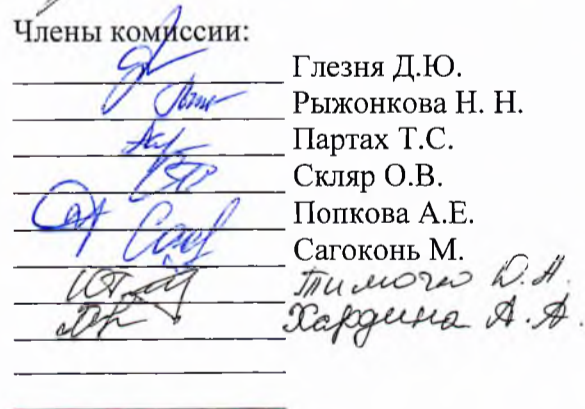 Члены комиссии:
Глезня Д.Ю.
Рыжонкова Н. Н.
Партах Т.С.
Скляр О.В.
Попкова А.Е.
Сагоконь М.
Тимочко
Хардина А.А.